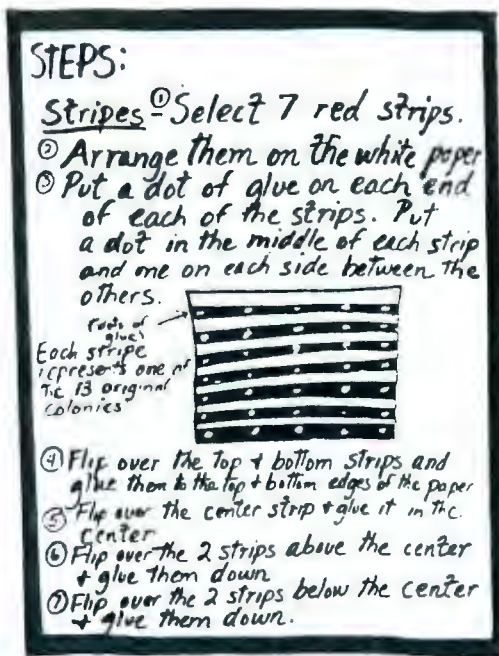 STEPS:
Stripes ① - Select 7 red strips.
② Arrange them on the white paper
③ Put a dot of glue on each end
of each of the strips. Put
a dot in the middle of each strip
and one on each side between the
others.
of
glue
Each stripe
represents one of
The 13 original
Colonies
④ Flip over the top + bottom strips and
glue them to the top + bottom edges of the paper
⑤ Flip over the center strip + glue it in the
center
⑥ Flip over the 2 strips above the center
+ glue them down
⑦ Flip over the 2 strips below the center
+ glue them down.